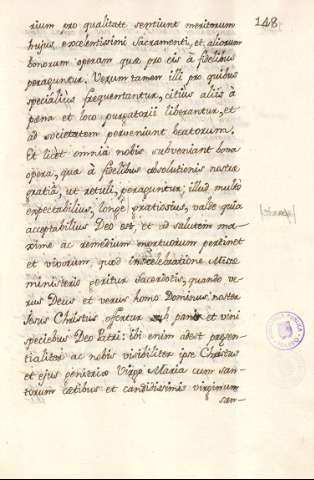 148
rium pro qualitate sentiunt meritorum
hujus, excelentissimi Sacramenti, et aliorum
bonorum operum quæ pro eis à fidelibus
peraguntur. Verum tamen illi pro quibus
speciàlius frequentantur, citius aliis à
pæna et loco purgatorii liberantur, et
ad societatem perveniunt beatorum.
Et licet omnia nobis subveniant bona
opera, quæ à fidelibus absolutionis nostræ
gratiâ, ut retuli, peraguntur; illud multo
expectabilius, longè pratiosius, valde quia
acceptabilius Deo est, et ad salutem ma-
xime ac remedium mortuorum pertinet
et vivorum, quod in celebratione Missæ
ministerio geritur Sacerdotis, quando ve-
rus Deus et verus homo Dominus noster
Jesus Christus offertur sub panis et vini
speciebus Deo Patri: ibi enim adest præsen-
tialiter ac nobis visibiliter ipse Christus
et ejus genitrix Virgo Maria cum san-
torum cœtibus et candidissimis virginum
san-